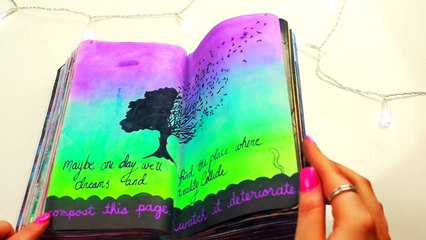 Maybe one day we'll
dreams and
find the place where
reality collide
compost this page.
watch it deteriorate